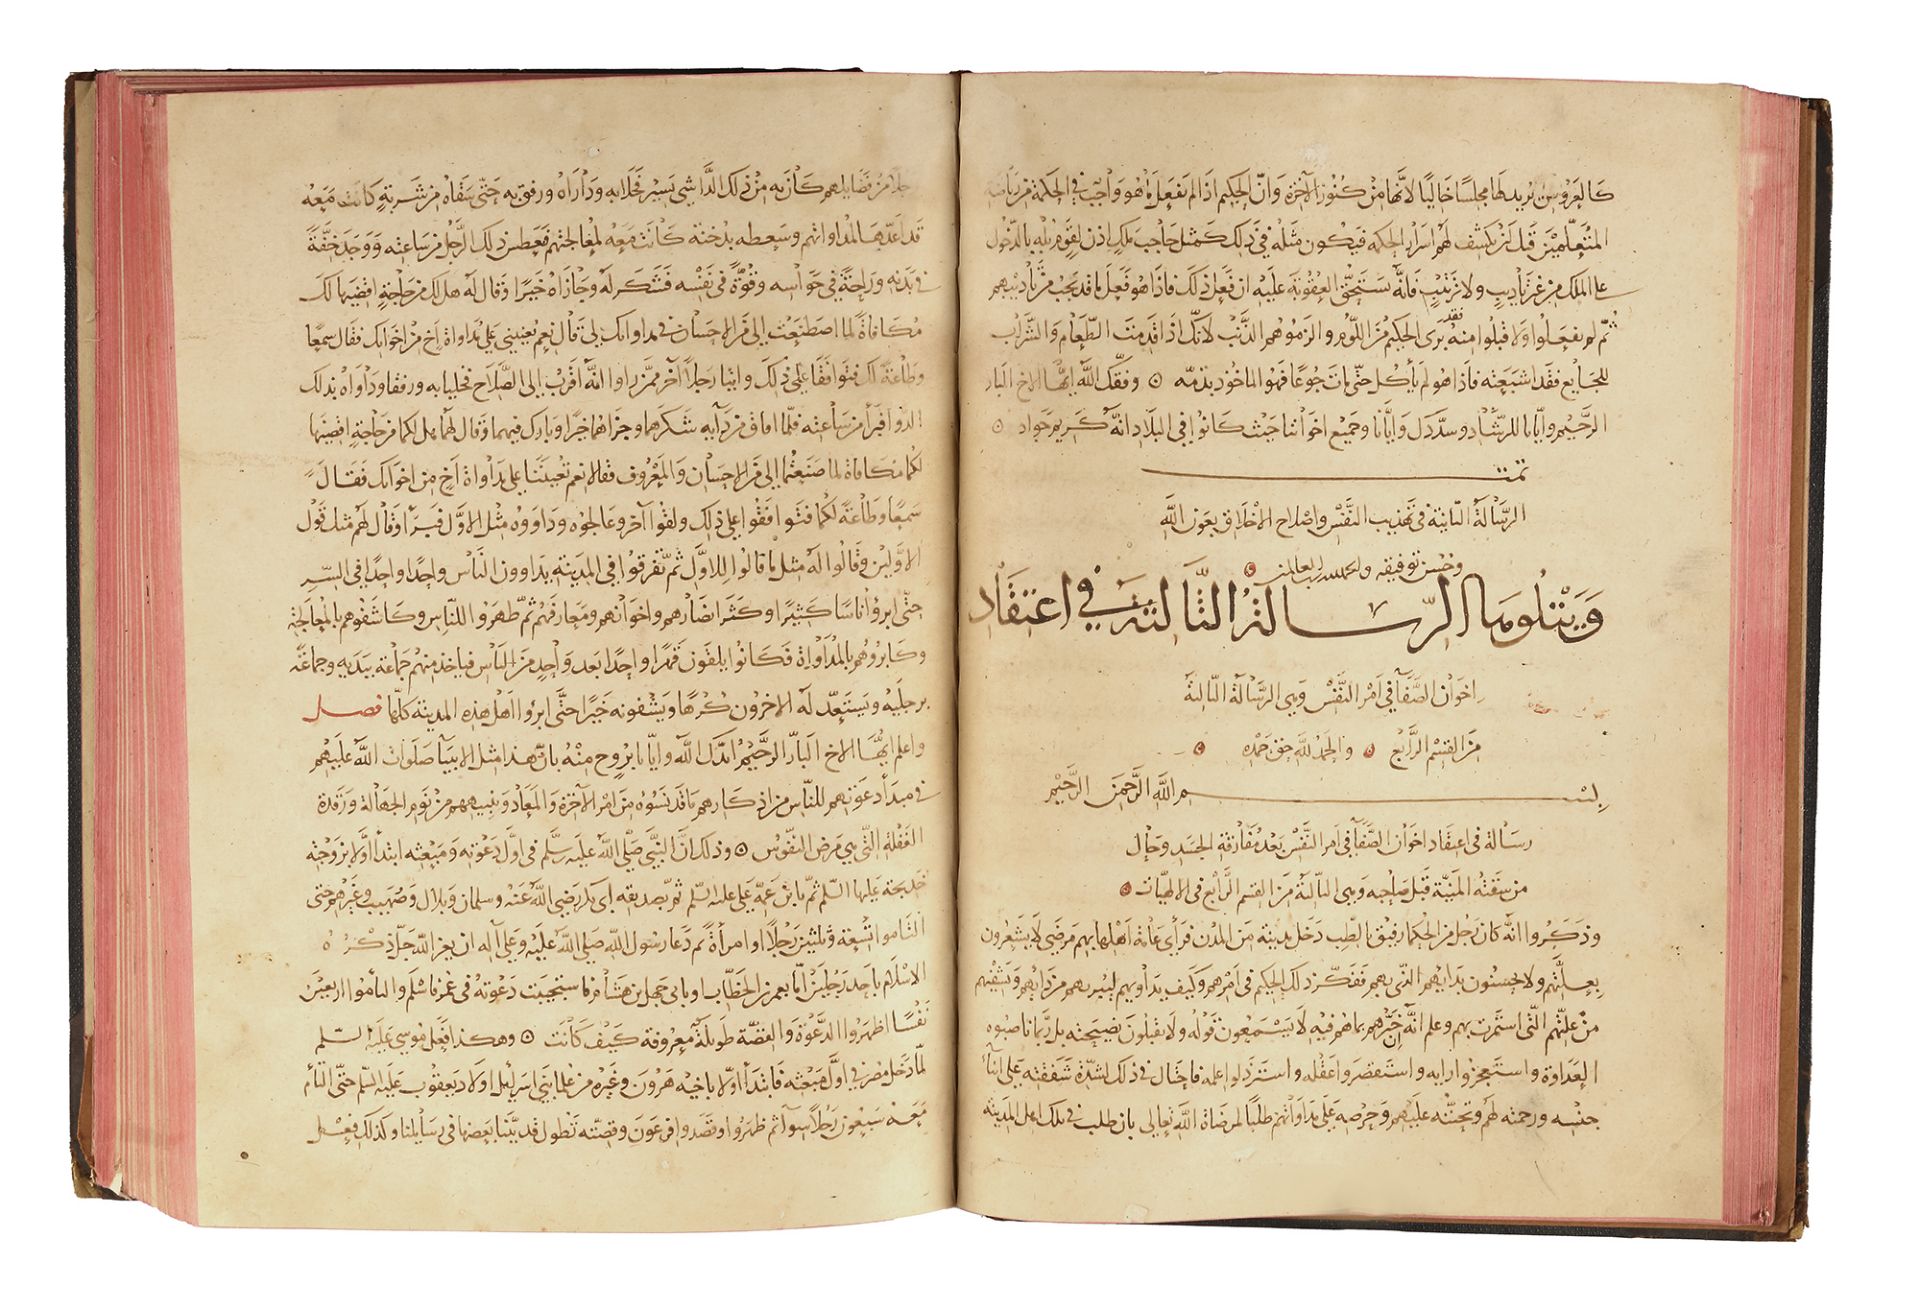 كالعروس تريد لها مجلسًا خاليًا لانّها من كنوز الآخرة وانّ الحكيم اذا لم يفعل ما هو واجب في الحكمة من رياضة
المتعلّمين قبل ان يكشف لهم اسرار الحكمة فيكون مثله في ذلك كمثل حاجب ملك اذن لقوم بله بالدّخول
على الملك من غير تأديب ولا ترتيب فانّه يستحقّ العقوبة عليه ان فعل ذلك فاذا هو فعل ما قد يجب من تأديبهم
ثمّ لم يفعلوا ولا قبلوا منه فقد برى الحكيم من اللّوم والزموهم الذّنب لانّك اذا قدمت الطّعام والشّراب
للجايع فقد اشبعته فاذا هو لم يأكل حتّى مات جوعًا فهو الماخوذ بذمّه وفقك اللّه ايّها الاخ البار
الرّحيم وايّانا للرّشاد وسدّدك وايّانا وجميع اخواننا حيث كانوا في البلاد انّه كريم جواد
تمت
الرّسالة الثانية في تهذيب النّفس واصلاح الاخلاق بعون اللّه
وحسن توفيقه والحمد لله رب العالمين
ويتلوها الرّسالة الثّالثة في اعتقاد
اخوان الصّفآ في امر النّفس وهي الرّسالة الثّالثة
من القسم الرّابع والحمد للّه حق حمده
بسم اللّه الرّحمن الرّحيم
رسالة في اعتقاد اخوان الصّفآ في امر النّفس بعد مفارقة الجسد وحال
من سبقته المنيّة قبل صاحبه وهي الثّالثة من القسم الرّابع في الالهيّات
وذكروا انّه كان رجل من الحكما رفيق بالطّب دخل مدينة من المدن فرأى عامّة اهلها بهم مرض خفى لا يشعرون
بعلّتهم ولا يحسنون بدايهم الّذي بهم ففكّر ذلك الحكيم في امرهم وكيف يداويهم ليبريهم من دايهم ويشفيهم
من علّتهم الّتي استمرت بهم وعلم انّه ان خبّرهم بما هم فيه لا يستمعون قوله ولا يقبلون نصيحته بل ربّما ناصبوه
العداوة واستعجزوا رايه واستنقصوا عقله واسترذلوا علمه فاحتال في ذلك لشدّة شفقته على ابنآء
جنسه ورحمته لهم وتحنّنه عليهم وحرصه على مداواتهم طلبًا لمرضاة اللّه تعالى بان طلب في تلك اهل المدينة
رجلا من فضايلهم كان به من ذلك الدّا شي يسير فخلا به وداراه ورفق به حتّى سقاه من شربة كانت معه
قد اعدّها لمداواتهم وسعطه بدخنة كانت معه لمعالجتهم فعطس ذلك الرّجل من ساعته ووجد خفّةً
في بدنه وراحةً في حواسه وقوّةً في نفسه فتشكر له وجازاه خيرًا وقال له هل لك من حاجةٍ اقضيها لك
مكافاةً لما اصطنعت إلي من الاحسان في مداواتك لي قال نعم تعينني على مداواة اخ من اخوانك فقال سمعًا
وطاعة لك فتوافقا على ذلك واتيا رجلًا آخر ممّن راوا انّه اقرب إلى الصّلاح فخليا به ورفقا وداواه بذلك
الدّوا فبرأ من ساعته فلمّا افاق من دآيه شكرهما وجزاهما خيرًا وبارك فيهما وقال لهما هل لكما من حاجة اقضيها
لكما مكافاة لما صنعتما إلي من الاحسان والمعروف فقالا نعم تعيننا على مداواة أخ من اخوانك فقال
سمعًا وطاعةً لكما فتوافقوا على ذلك ولقوا آخر وعالجوه وداووه مثل الاوّل فبرأ وقال لهم مثل قول
الاوّلين وقالوا له مثل ما قالوا للاوّل ثمّ تفرقوا في المدينة يداوون النّاس واحدًا واحدًا في السّر
حتّى ابرؤا اناسًا كثيرًا وكثر انصارهم واخوانهم ومعارفهم ثمّ ظهروا للنّاس وكاشفوهم بالمعالجة
وكابروهم بالمداواة فكانوا يلقون قهرًا واحدًا بعد واحدٍ من النّاس فياخذ منهم جماعة بيديه وجماعةً
برجليه ويستعدّ له الاخرون كرهًا ويشفونه جبرًا حتّى ابرؤا اهل هذه المدينة كلّها فصل
واعلم ايّها الاخ البارّ الرّحيم ايّدك اللّه وايّانا بروح منه بانّ هذا مثل الانبيآء صلوات اللّه عليهم
في مبدأ دعوتهم للنّاس من اذكارهم ما قد نسوه من امر الآخرة والمعاد وتنبيههم من نوم الجهالة ورقدة
الغفلة الّتي هي مرض النّفوس وذلك انّ النّبيّ صلّى اللّه عليه وسلّم في اوّل دعوته ومبعثه ابتدأ اوّلا بزوجته
خديجة عليها السّلم ثمّ بابن عمّه علي عليه السّلم ثمّ بصديقه أبي بكر رضي اللّه عنه وسلمان وبلال وصهيب وغيرهم حتى
التاموا تسعة وثلثين رجلًا او امرأة ثم دعا رسول اللّه صلى اللّه عليه وعلى آله ان يعز اللّه جلّ ذكره
الاسلام باحد رجلين امّا بعمر بن الخطّاب او بابي جهل بن هشام فاستجيبت دعوته في عمر فاسلم والتاموا اربعين
نفسًا اظهروا الدّعوة والقصّة طويلة معروفة كيف كانت وهكذا فعل موسى عليه السّلم
لمّا دخل مصر في اوّل مبعثه فابتدأ اوّلا باخيه هرون وغيره من علما بني اسرايل اولاد يعقوب عليه السّلم حتّى التأم
معه سبعون رجلًا سوآء ثم ظهروا وقصدوا فرعون وقصّته تطول قد بيّنا بعضها في رسايلنا وكذلك فعل